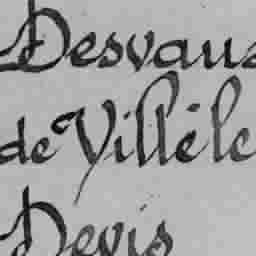 Desvaus
de Villèle
Devis